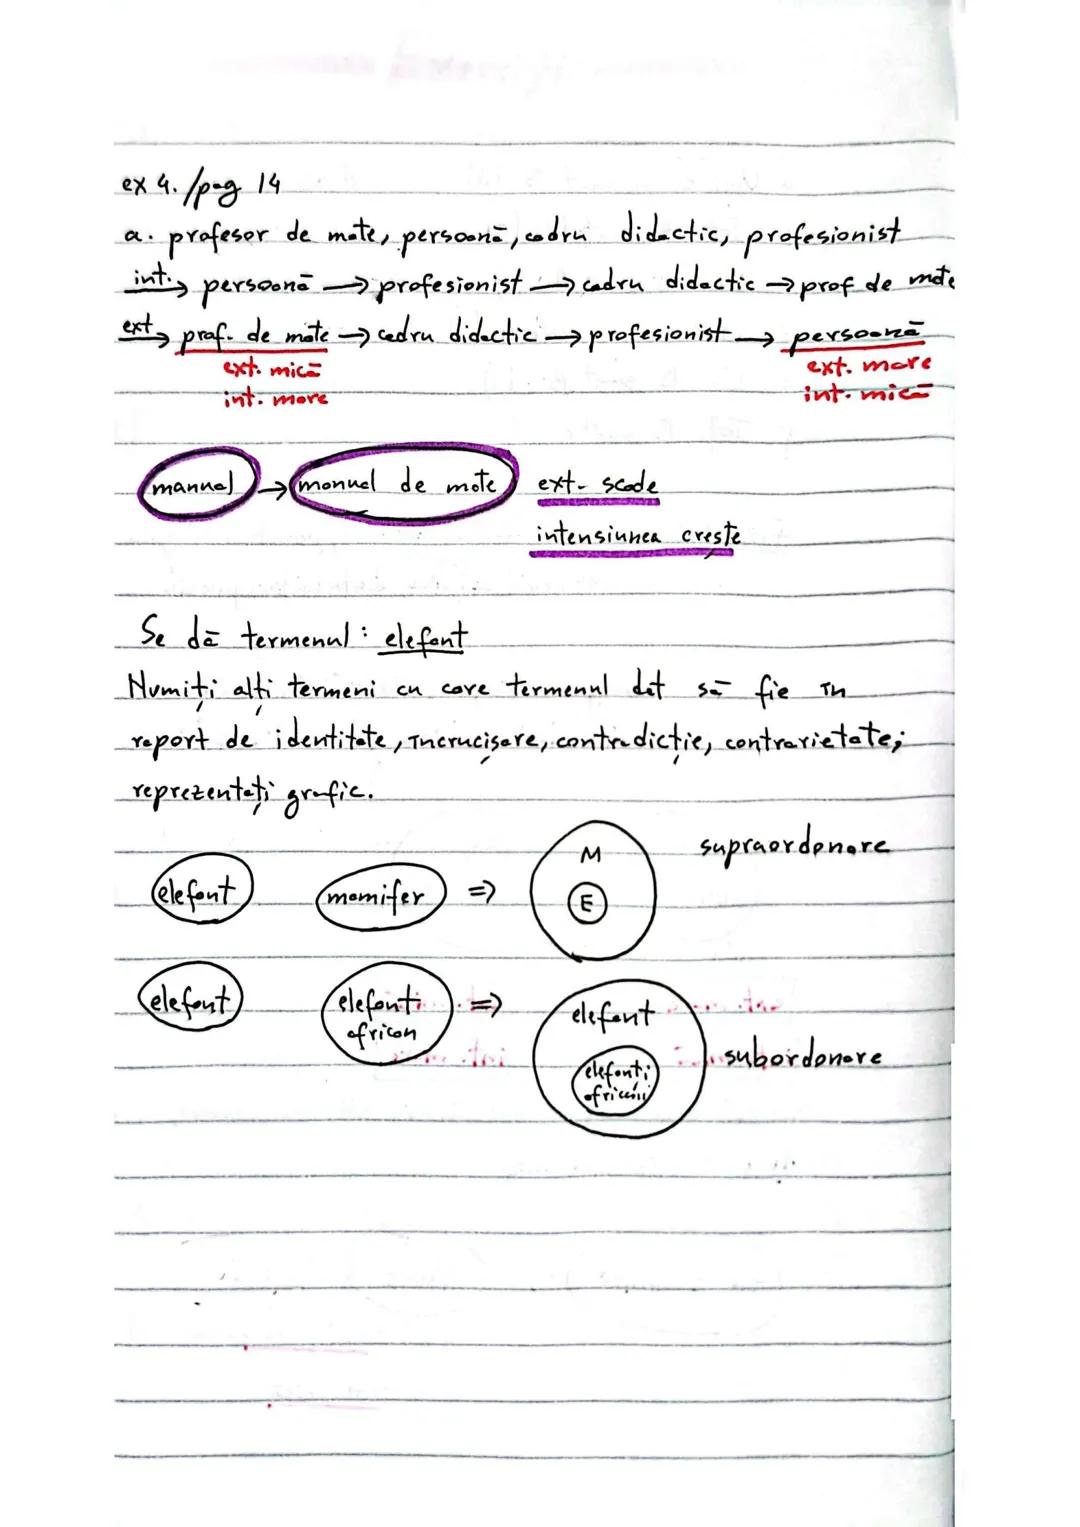 ex 4. /pag 14
a. profesor de mate, persoană, cadru didactic, profesionist
int. → persoană → profesionist → cadru didactic → prof de mate
ext → prof. de mate → cadru didactic → profesionist → persoană
ext. mică ext. mare
int. mare int. mică
manual → manual de mate ext. scade
intensiunea crește
Se dă termenul : elefant
Numiți alți termeni cu care termenul dat să fie în
raport de identitate, încrucișare, contradicție, contrarietate;
reprezentați grafic.
elefant mamifer => M E supraordonare
elefant elefanți african => elefant elefanți africani subordonare